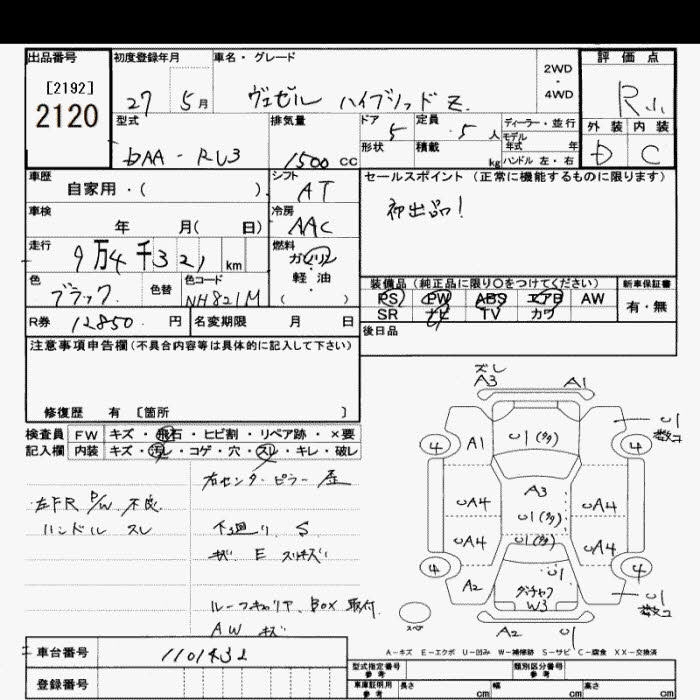 出品番号 初度登録年月 車名・グレード 2WD・4WD 評価点
[2192]
2120
27 5月 ヴェゼル ハイブリッド Z. R小
型式 排気量 ドア 5 定員 5人 ディーラー・並行 外装 内装
DAA - RU3 1500 cc 形状 積載 kg モデル年式 年 D C
ハンドル 左・右
車歴 シフト セールスポイント (正常に機能するものに限ります)
自家用・( ) AT
初出品!
車検 冷房
年 月( 日) AAC
走行 9万4千321 km 燃料 ガソリン・軽油( )
色 ブラック 色替 色コード NH821M
装備品 (純正品に限り○をつけてください) 新車保証書
PS PW ABS エアB AW 有・無
SR ナビ TV カワ
R券 12850 円 名変期限 月 日
後日品
注意事項申告欄(不具合内容等は具体的に記入して下さい)
修復歴 有 [箇所 ]
検査員記入欄 FW キズ・飛石・ヒビ割・リペア跡・×要
内装 キズ・汚レ・コゲ・穴・スレ・キレ・破レ
右センターピラー 歪
左FR P/W 不良
ハンドル スレ
下廻り S
ルーフキャリア、BOX 取付
AW キズ
ズレ
A3 A1
U1 数コ
4 A1 U1(多) 4
A3
UA4 U1(多) UA4
UA4 U1(多) UA4
4 U1 4
A2 W3 U1 数コ
スペア
A2 U1
A-キズ E-エクボ U-凹み W-補修跡 S-サビ C-腐食 XX-交換済
車台番号 1101432
登録番号
型式指定番号 参考 類別区分番号 参考
車庫証明用 参考 長さ cm 幅 cm 高さ cm